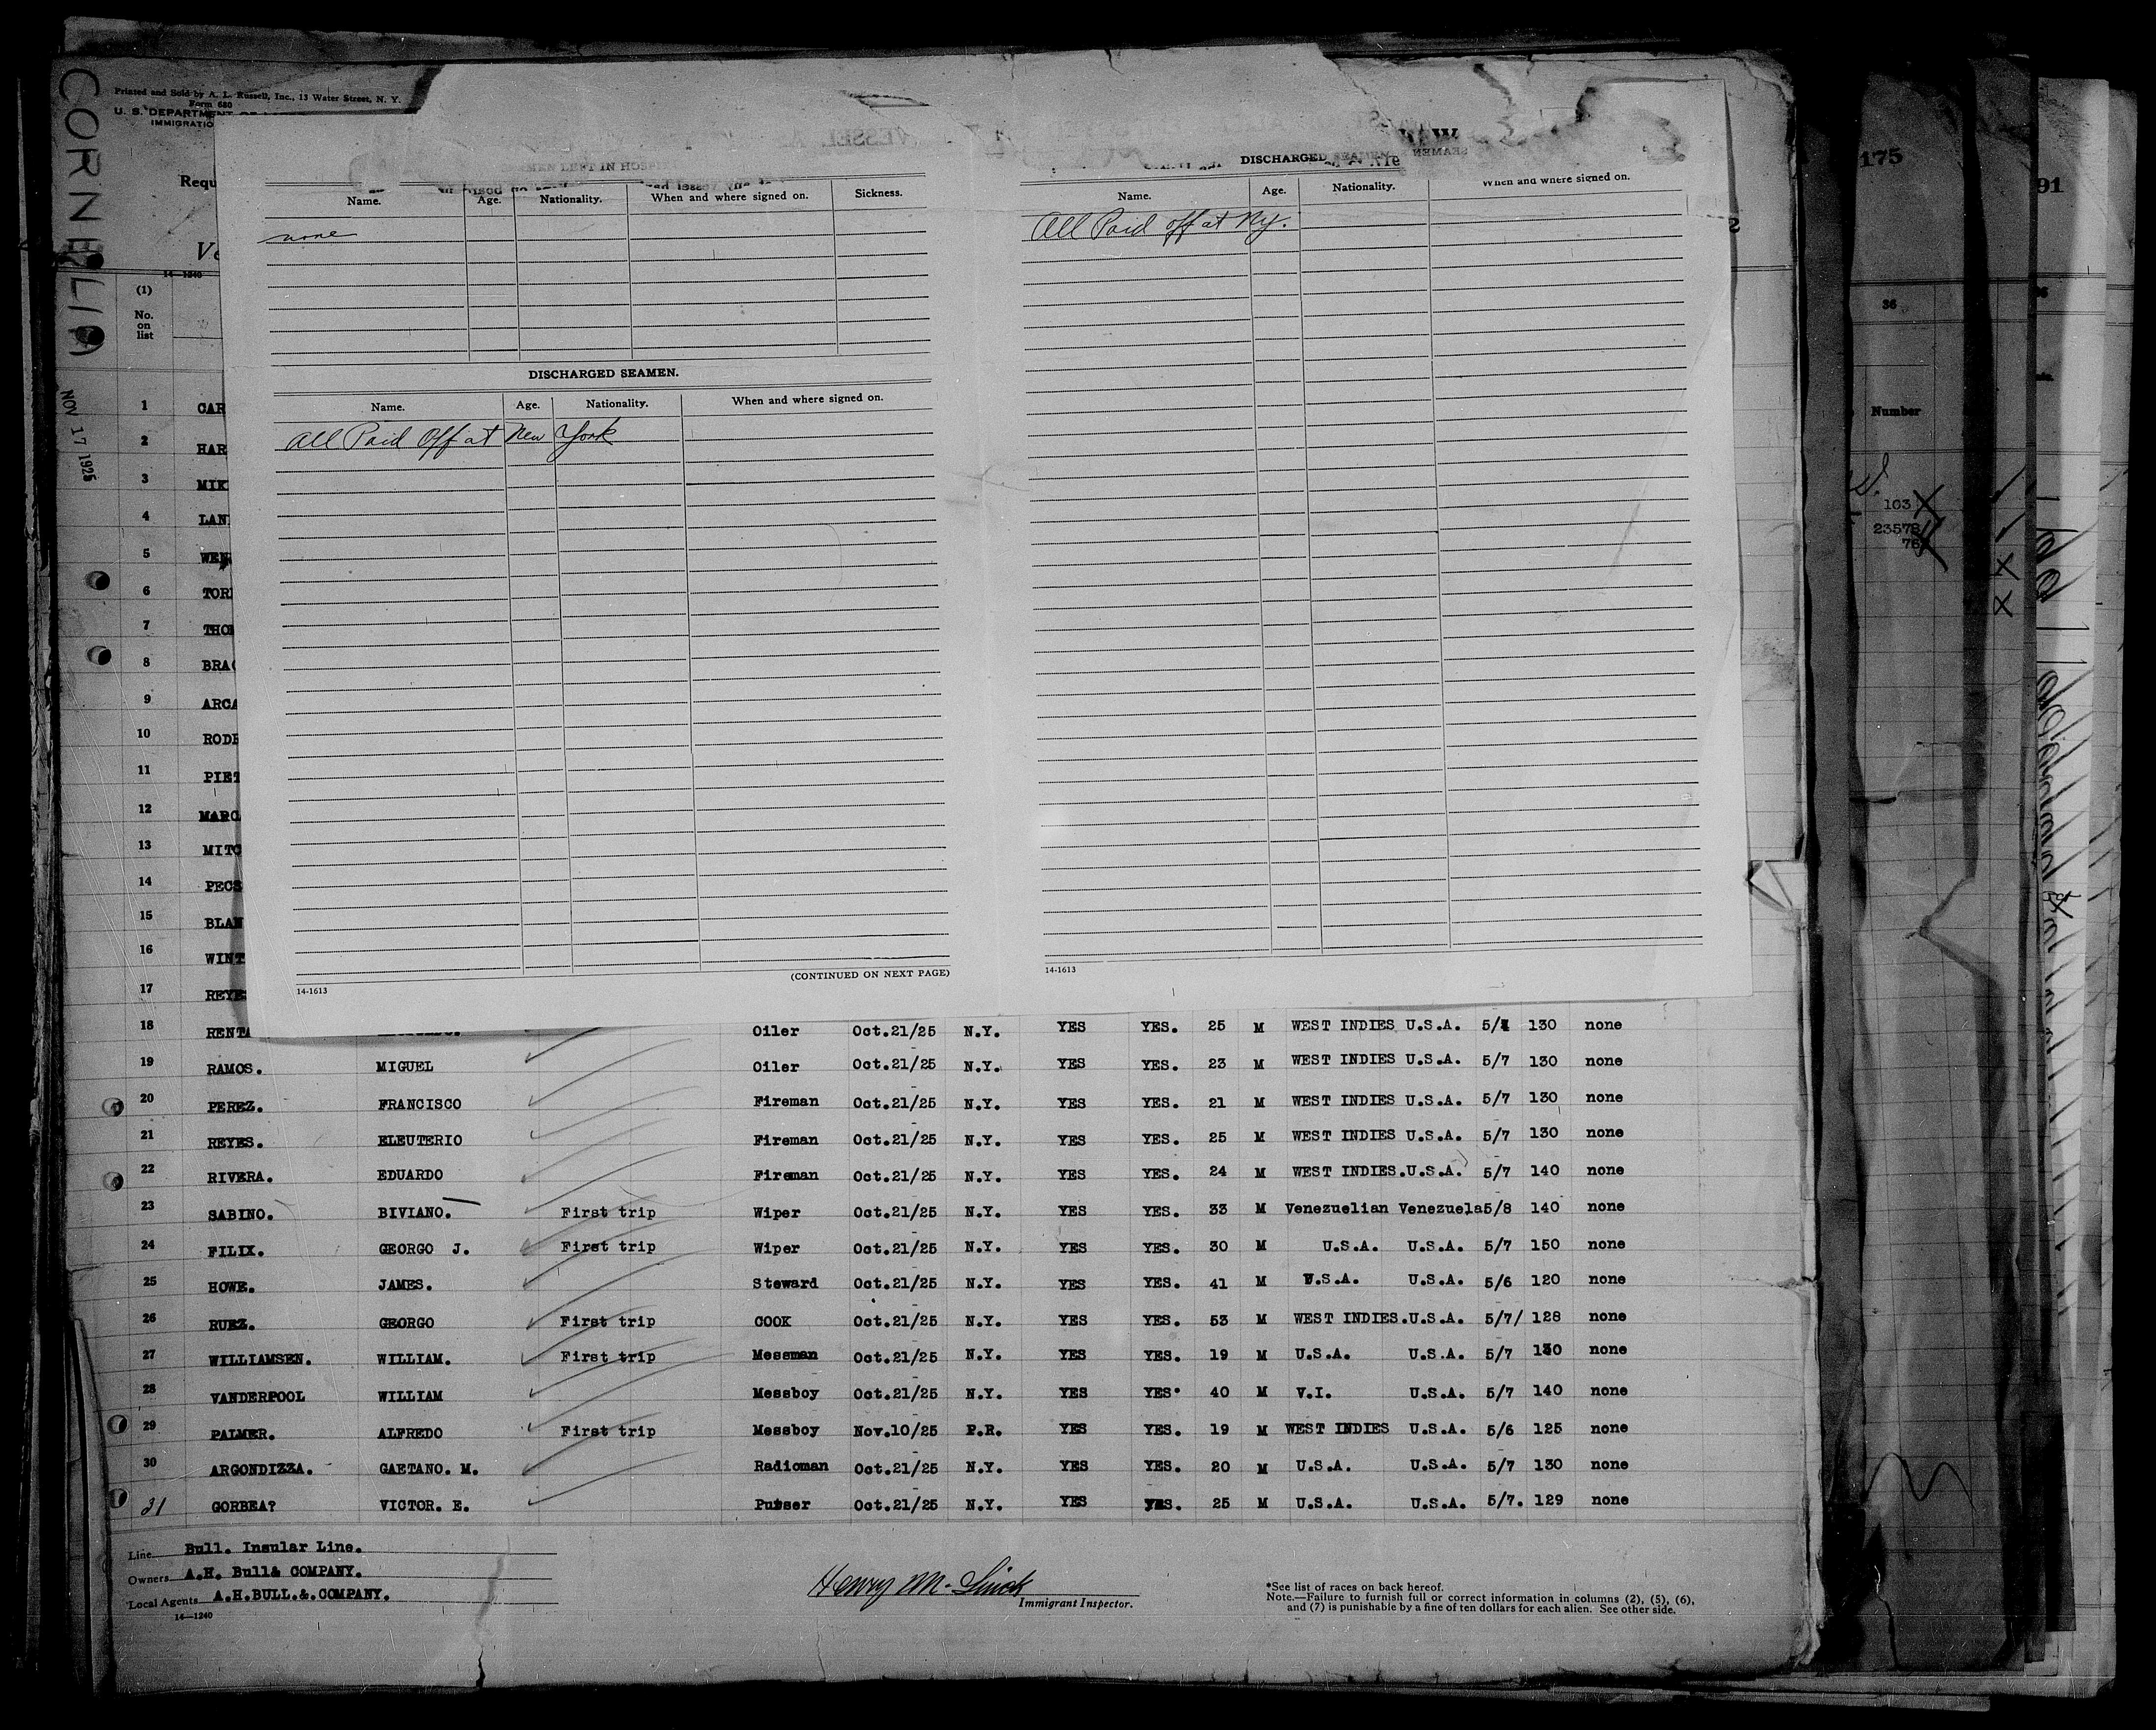 CORNELIA
NOV 17 1925
Printed and Sold by A. L. Russell, Inc., 13 Water Street, N. Y.
Form 680
U. S. DEPARTMENT OF
IMMIGRATIO
Requ
Ve
14—1240
(1)
No.
on
list
Name. Age. Nationality. When and where signed on. Sickness.
none
DISCHARGED SEAMEN.
Name. Age. Nationality. When and where signed on.
All Paid Off at New York
(CONTINUED ON NEXT PAGE)
14-1613
DISCHARGED SEAMEN
Name. Age. Nationality. When and where signed on.
All Paid off at Ny.
14-1613
175
91
36
Number
103
23578
76
1 CAR
2 HAR
3 MIK
4 LAN
5 WEN
6 TOR
7 THO
8 BRA
9 ARCA
10 RODR
11 PIET
12 MARC
13 MITC
14 PECS
15 BLAN
16 WINT
17 REYE
18 RENTA Oiler Oct.21/25 N.Y. YES YES. 25 M WEST INDIES U.S.A. 5/ 130 none
19 RAMOS. MIGUEL Oiler Oct.21/25 N.Y. YES YES. 23 M WEST INDIES U.S.A. 5/7 130 none
20 PEREZ. FRANCISCO Fireman Oct.21/25 N.Y. YES YES. 21 M WEST INDIES U.S.A. 5/7 130 none
21 REYES. ELEUTERIO Fireman Oct.21/25 N.Y. YES YES. 25 M WEST INDIES U.S.A. 5/7 130 none
22 RIVERA. EDUARDO Fireman Oct.21/25 N.Y. YES YES. 24 M WEST INDIES.U.S.A. 5/7 140 none
23 SABINO. BIVIANO. First trip Wiper Oct.21/25 N.Y. YES YES. 33 M Venezuelian Venezuela5/8 140 none
24 FILIX. GEORGO J. First trip Wiper Oct.21/25 N.Y. YES YES. 30 M U.S.A. U.S.A. 5/7 150 none
25 HOWE. JAMES. Steward Oct.21/25 N.Y. YES YES. 41 M U.S.A. U.S.A. 5/6 120 none
26 RUEZ. GEORGO First trip COOK Oct.21/25 N.Y. YES YES. 53 M WEST INDIES.U.S.A. 5/7/ 128 none
27 WILLIAMSEN. WILLIAM. First trip Messman Oct.21/25 N.Y. YES YES. 19 M U.S.A. U.S.A. 5/7 130 none
28 VANDERPOOL WILLIAM Messboy Oct.21/25 N.Y. YES YES. 40 M V.I. U.S.A. 5/7 140 none
29 PALMER. ALFREDO First trip Messboy Nov.10/25 P.R. YES YES. 19 M WEST INDIES U.S.A. 5/6 125 none
30 ARGONDIZZA. GAETANO. M. Radioman Oct.21/25 N.Y. YES YES. 20 M U.S.A. U.S.A. 5/7 130 none
31 GORBEA? VICTOR. E. Purser Oct.21/25 N.Y. YES YES. 25 M U.S.A. U.S.A. 5/7. 129 none
Line Bull. Insular Line.
Owners A.H. Bull& COMPANY.
Local Agents A.H.BULL.&.COMPANY.
14—1240
Henry M.
Immigrant Inspector.
*See list of races on back hereof.
Note.—Failure to furnish full or correct information in columns (2), (5), (6),
and (7) is punishable by a fine of ten dollars for each alien. See other side.